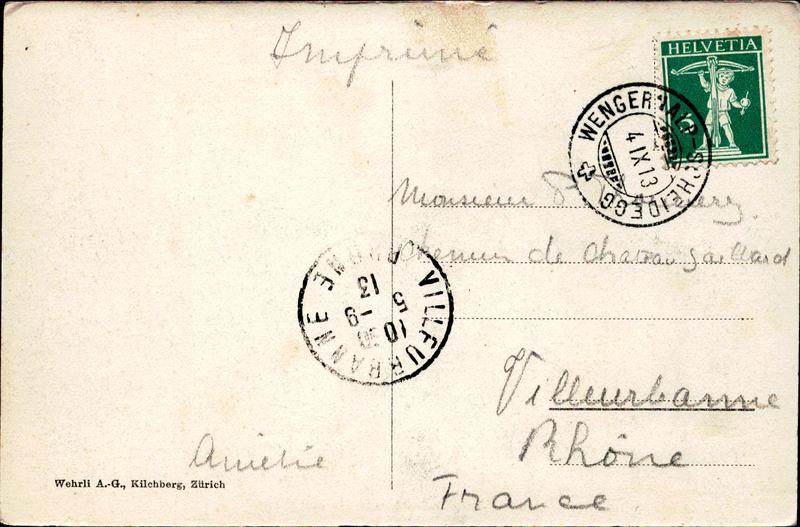 Imprimé
HELVETIA
5
WENGERNALP-SCHEIDEGG
4 IX 13
Monsieur
Chemin de Chateau Gaillard
VILLEURBANNE RHONE
10 30
5 -9
13
Villeurbanne
Rhône
France
Amélie
Wehrli A.-G., Kilchberg, Zürich